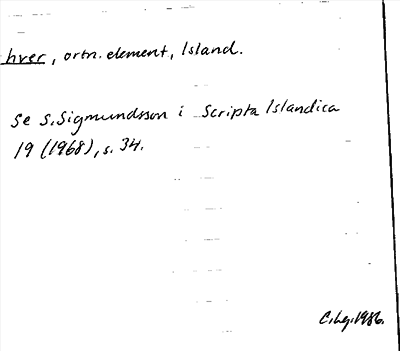 hver, ortn. element, Island.
Se S. Sigmundsson i Scripta Islandica
19 (1968), s. 34.
C.Lg. 1986.